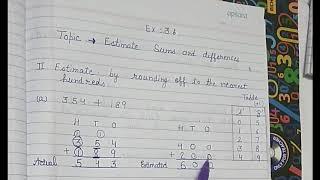 Ex:3.6
Topic → Estimate Sums and differences
II Estimate by rounding off to the nearest
hundreds.
(a) 354 + 189
H T O
① ①
3 5 4
+ 1 8 9
Actual 5 4 3
H T O
4 0 0
+ 2 0 0
Estimated 6 0 0